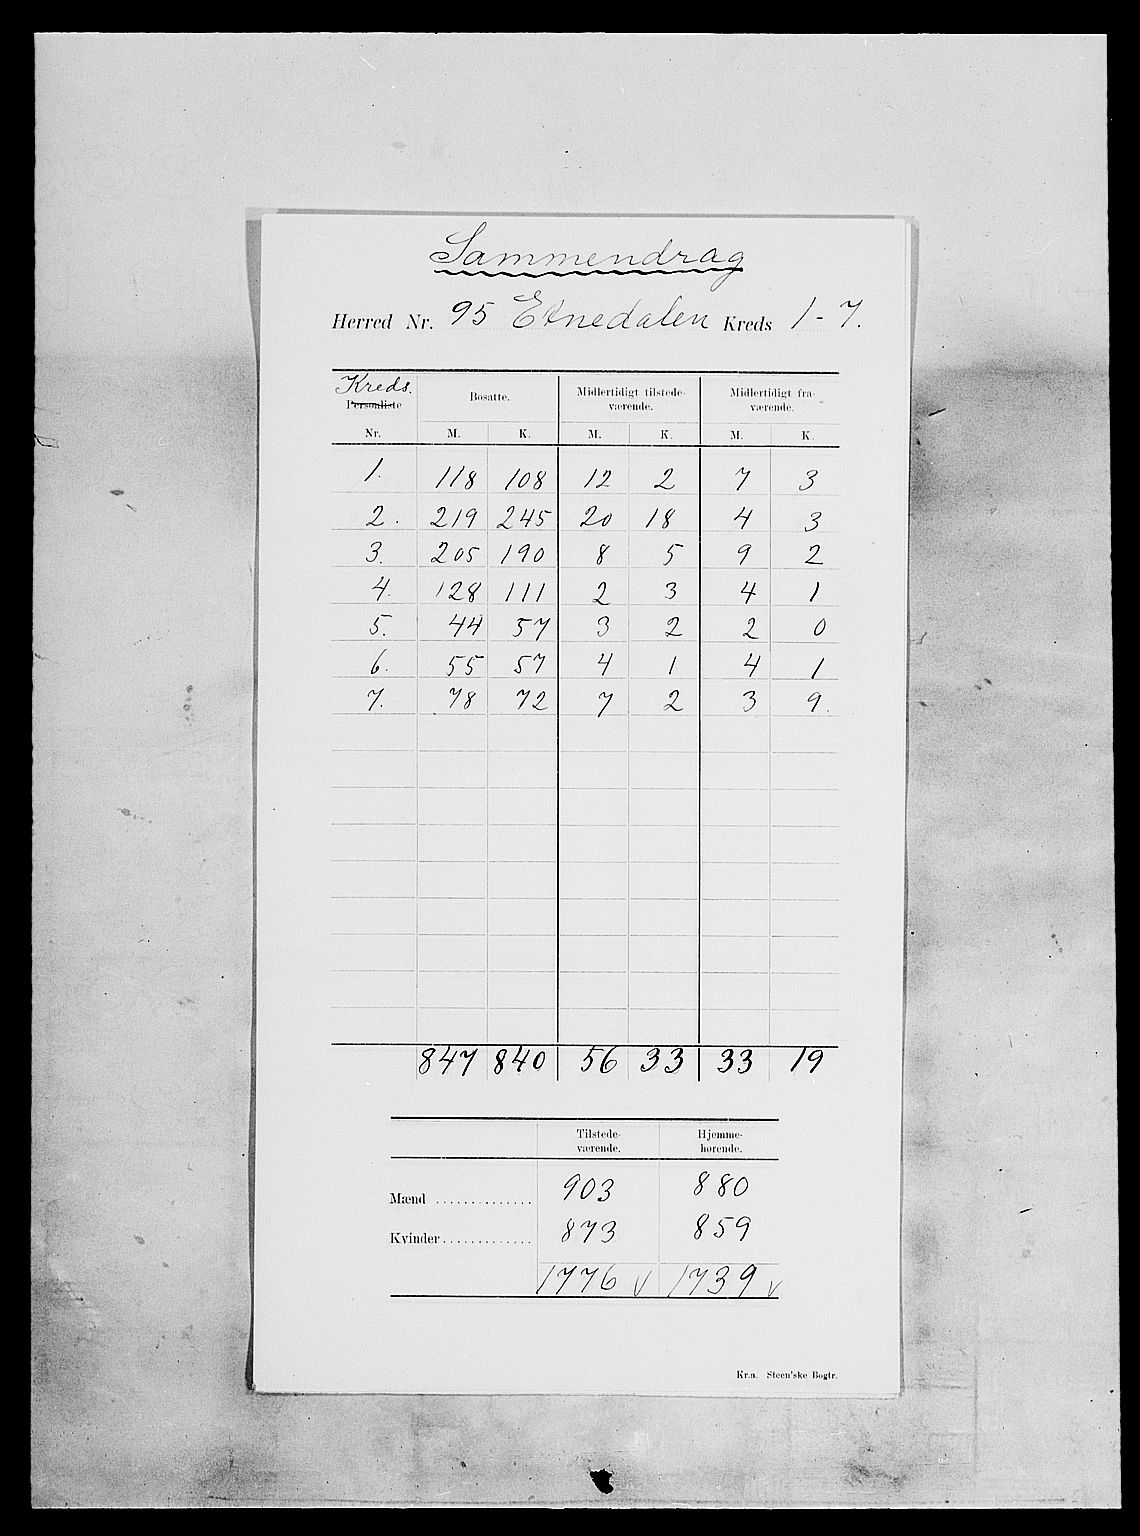 Sammendrag
Herred Nr. 95 Etnedalen Kreds 1-7.
Kreds.
Personliste Bosatte. Midlertidigt tilstede- Midlertidigt fra-
værende. værende.
Nr. M. K. M. K. M. K.
1. 118 108 12 2 7 3
2. 219 245 20 18 4 3
3. 205 190 8 5 9 2
4. 128 111 2 3 4 1
5. 44 57 3 2 2 0
6. 55 57 4 1 4 1
7. 78 72 7 2 3 9.
847 840 56 33 33 19
Tilstede- Hjemme-
værende. hørende.
Mænd .............. 903 880
Kvinder............. 873 859
1776 v 1739 v
Kr.a. Steen'ske Bogtr.